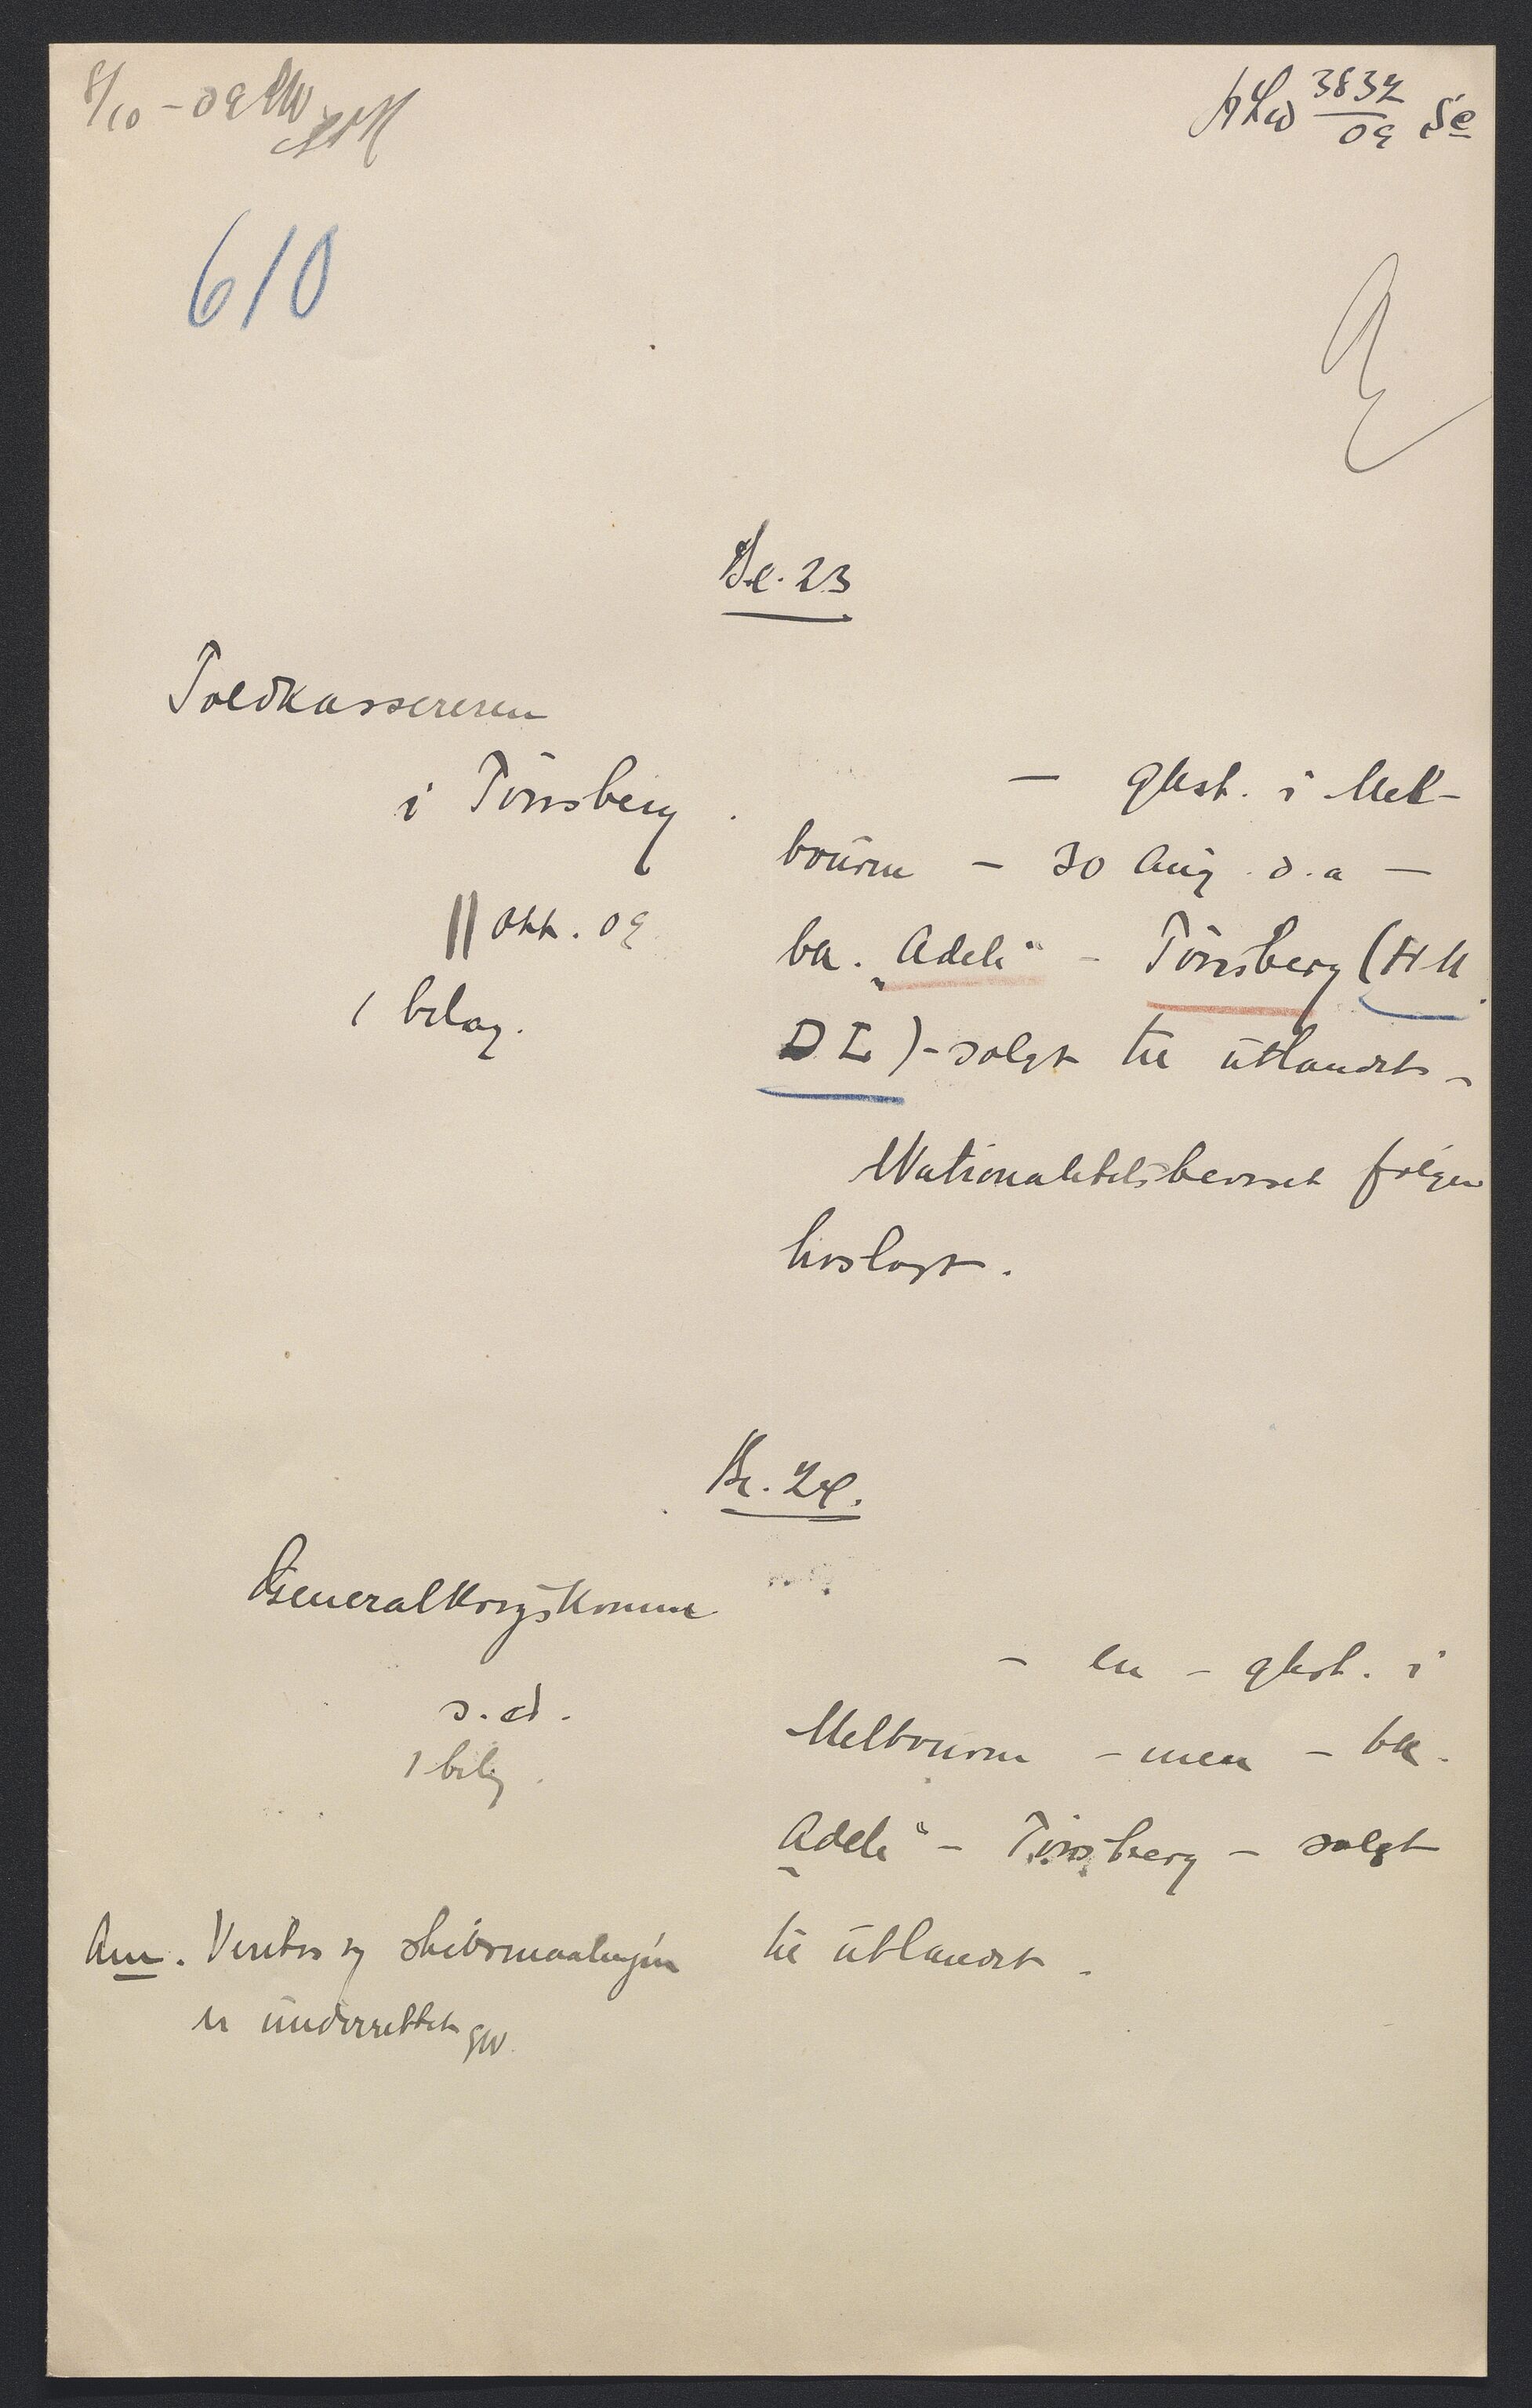 8/10 - 09
3832
09
610
23
Toldkassereren
i Tönsberg.
11 Okt. 09
1 bilag.
— gkst. i Mel-
bourne — 30 Aug. d.a —
bk. „Adele“ - Tönsberg (HK
DL) - solgt til utlandet -
Nationalitetsbeviset følger
hoslagt.
24.
Generalkrigskomm
s.d.
1 bilg.
- en - gkst. i
Melbourne - men - bk.
„Adele“ - Tönsberg - solgt
til utlandet.
Anm. Veritas og skibsmaalingen
er underrettet GW.